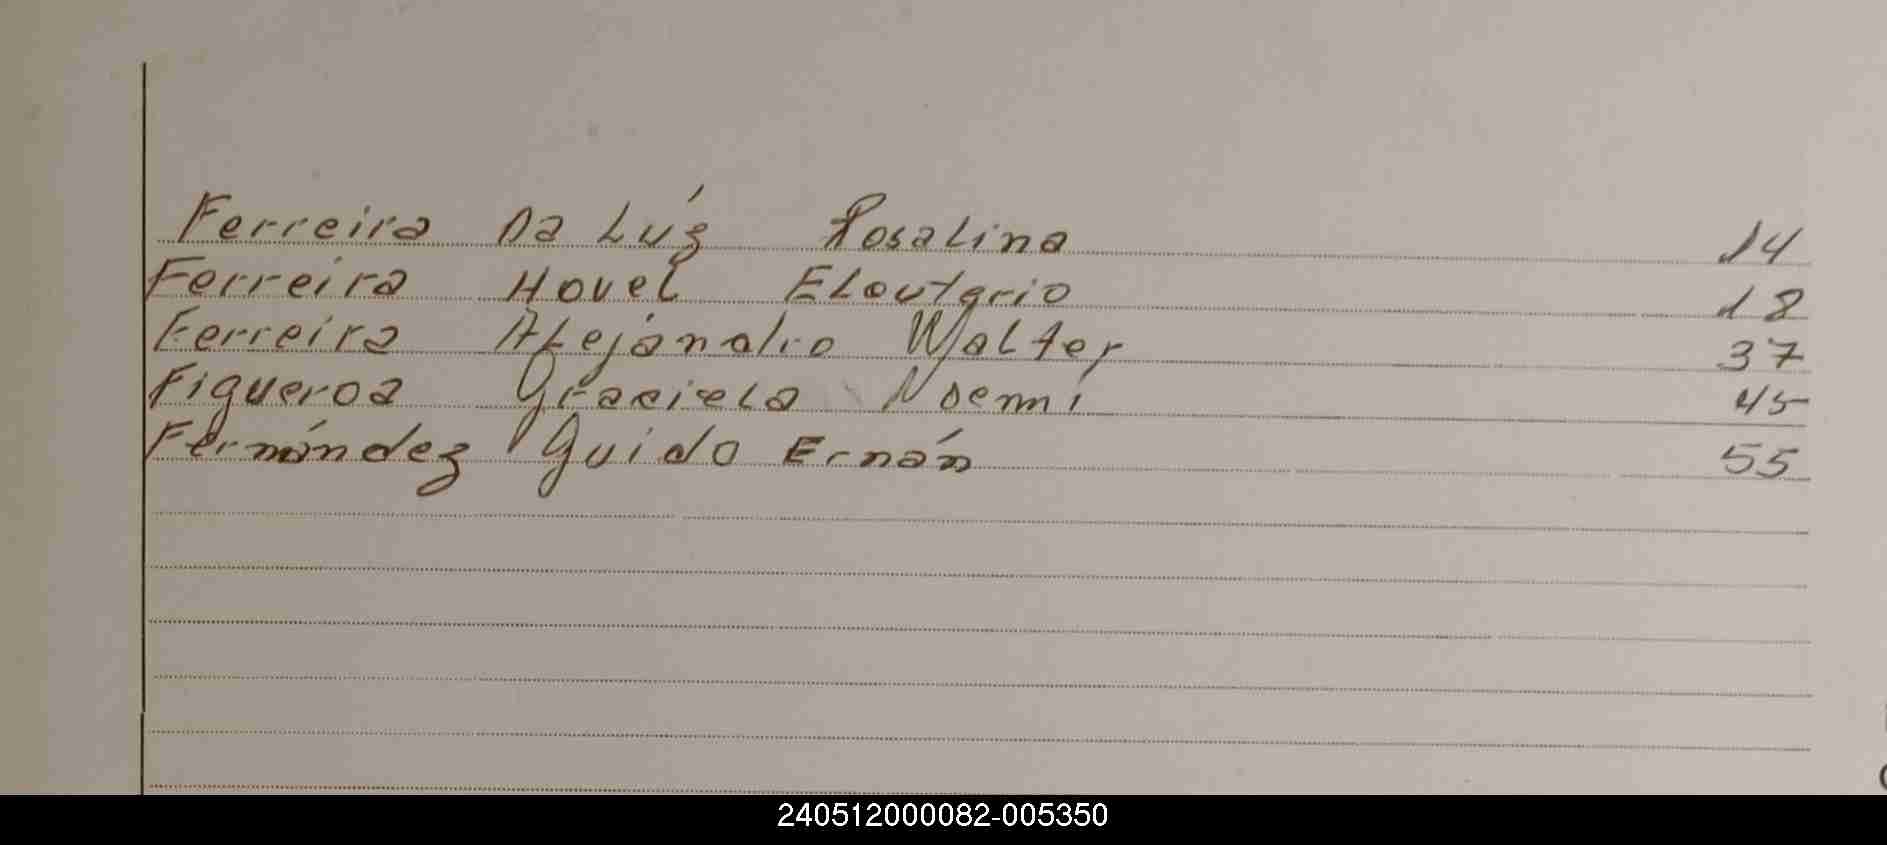 Ferreira Da Lúz Rosalina 14
Ferreira Hovel Eloutario 18
Ferreira Alejandro Walter 37
Figueroa Graciela Noemí 45
Fernández Guido Ernán 55
240512000082-005350